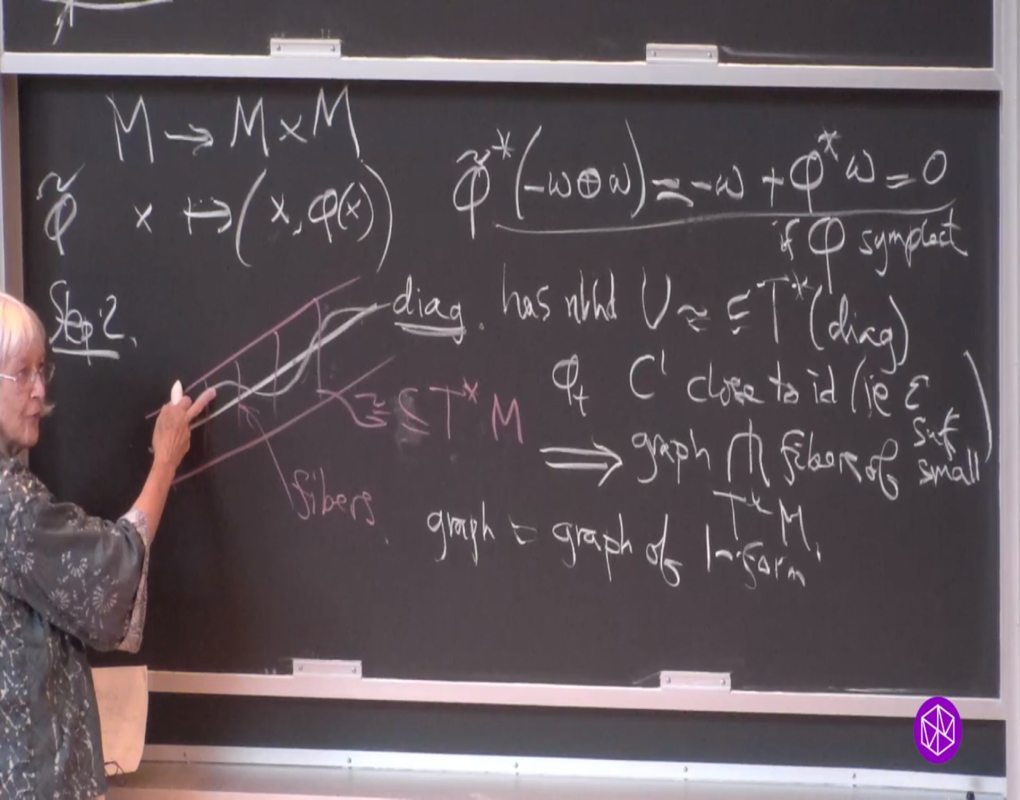 M → M × M
φ̃ x ↦ (x, φ(x))
φ̃*(-ω⊕ω) = -ω + φ*ω = 0
if φ symplect
Step 2.
diag. has nbhd U ≈ εT*(diag)
φt C' close to id (ie ε suf small)
≅ εT*M
⟹ graph ⋔ fibers of T*M.
fibers
graph = graph of 1-form